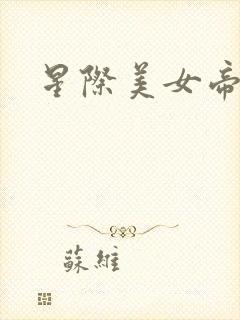 星際美女帝
蘇維